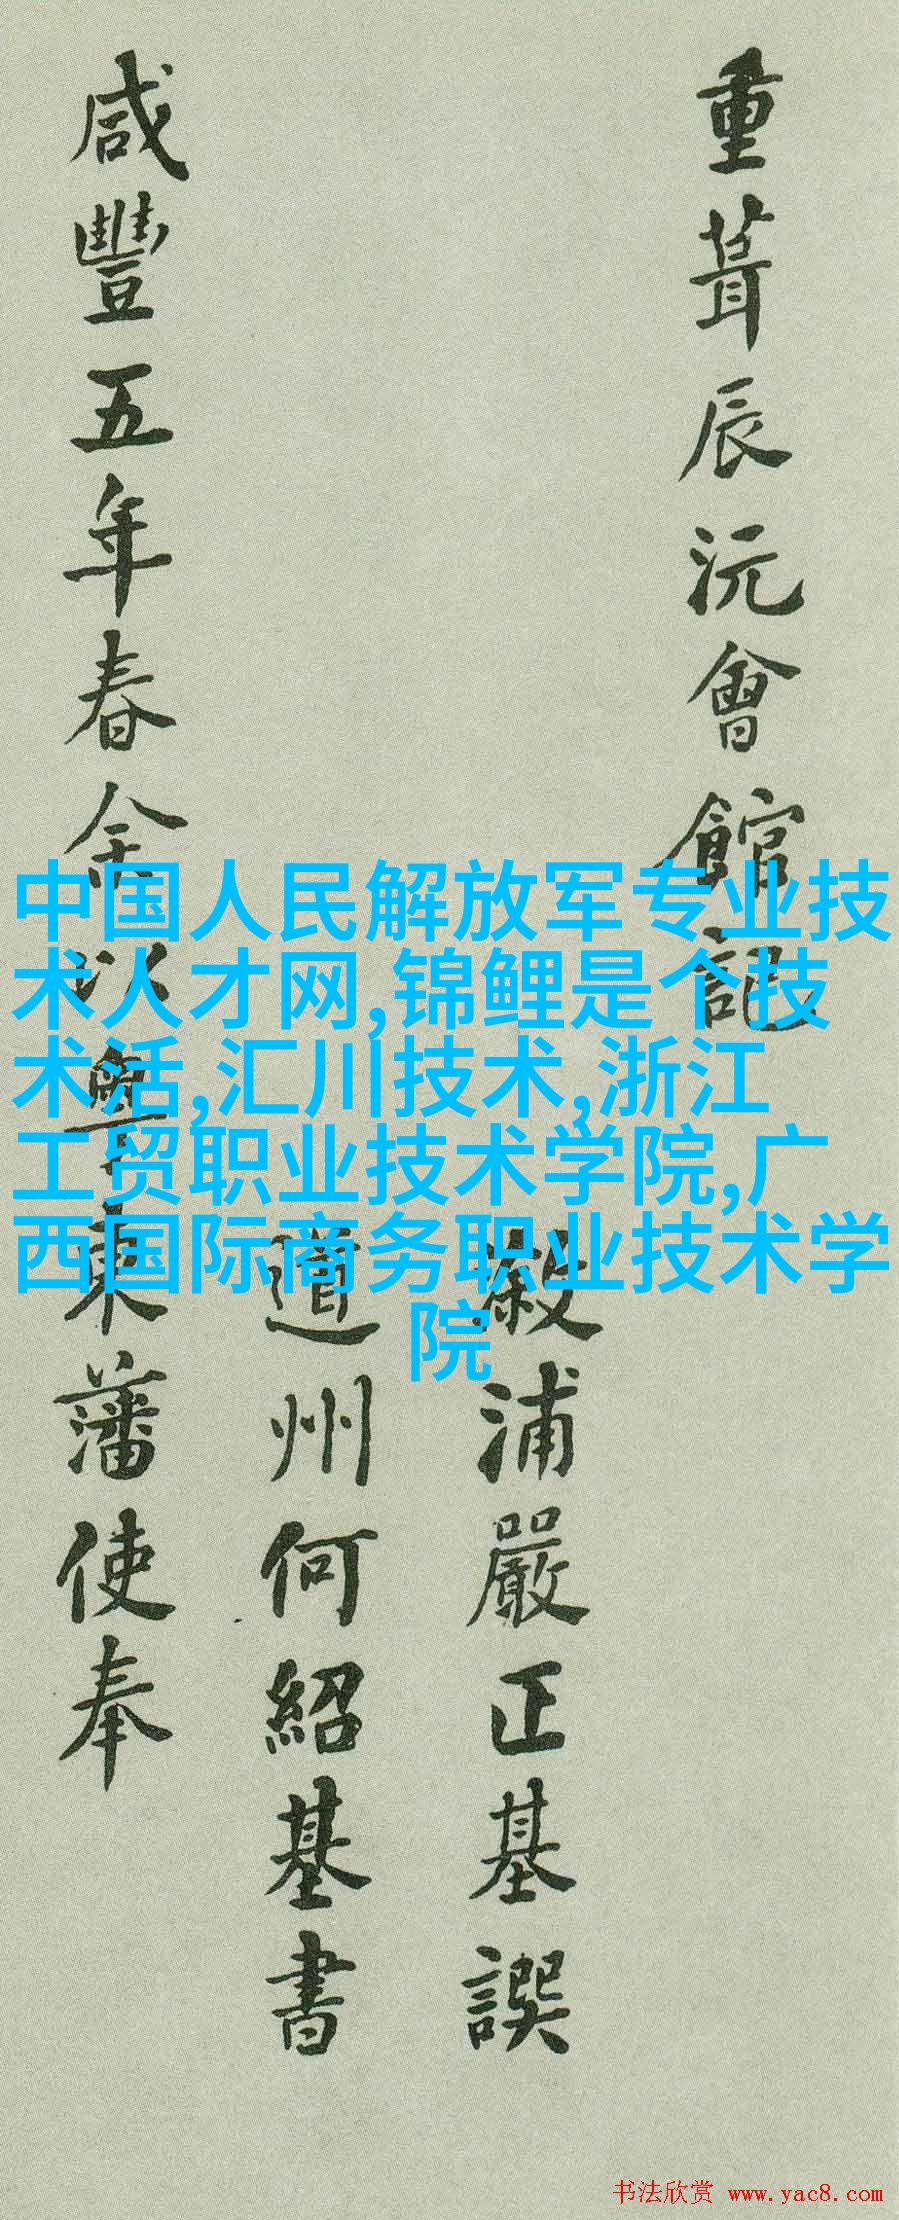 重葺辰沅會館記
浦嚴正基譔
道州何紹基書
咸豐五年春余以粵東藩使奉
中国人民解放军专业技
术人才网,锦鲤是个技
术活,汇川技术,浙江
工贸职业技术学院,广
西国际商务职业技术学
院
书法欣赏 www.yac8.com